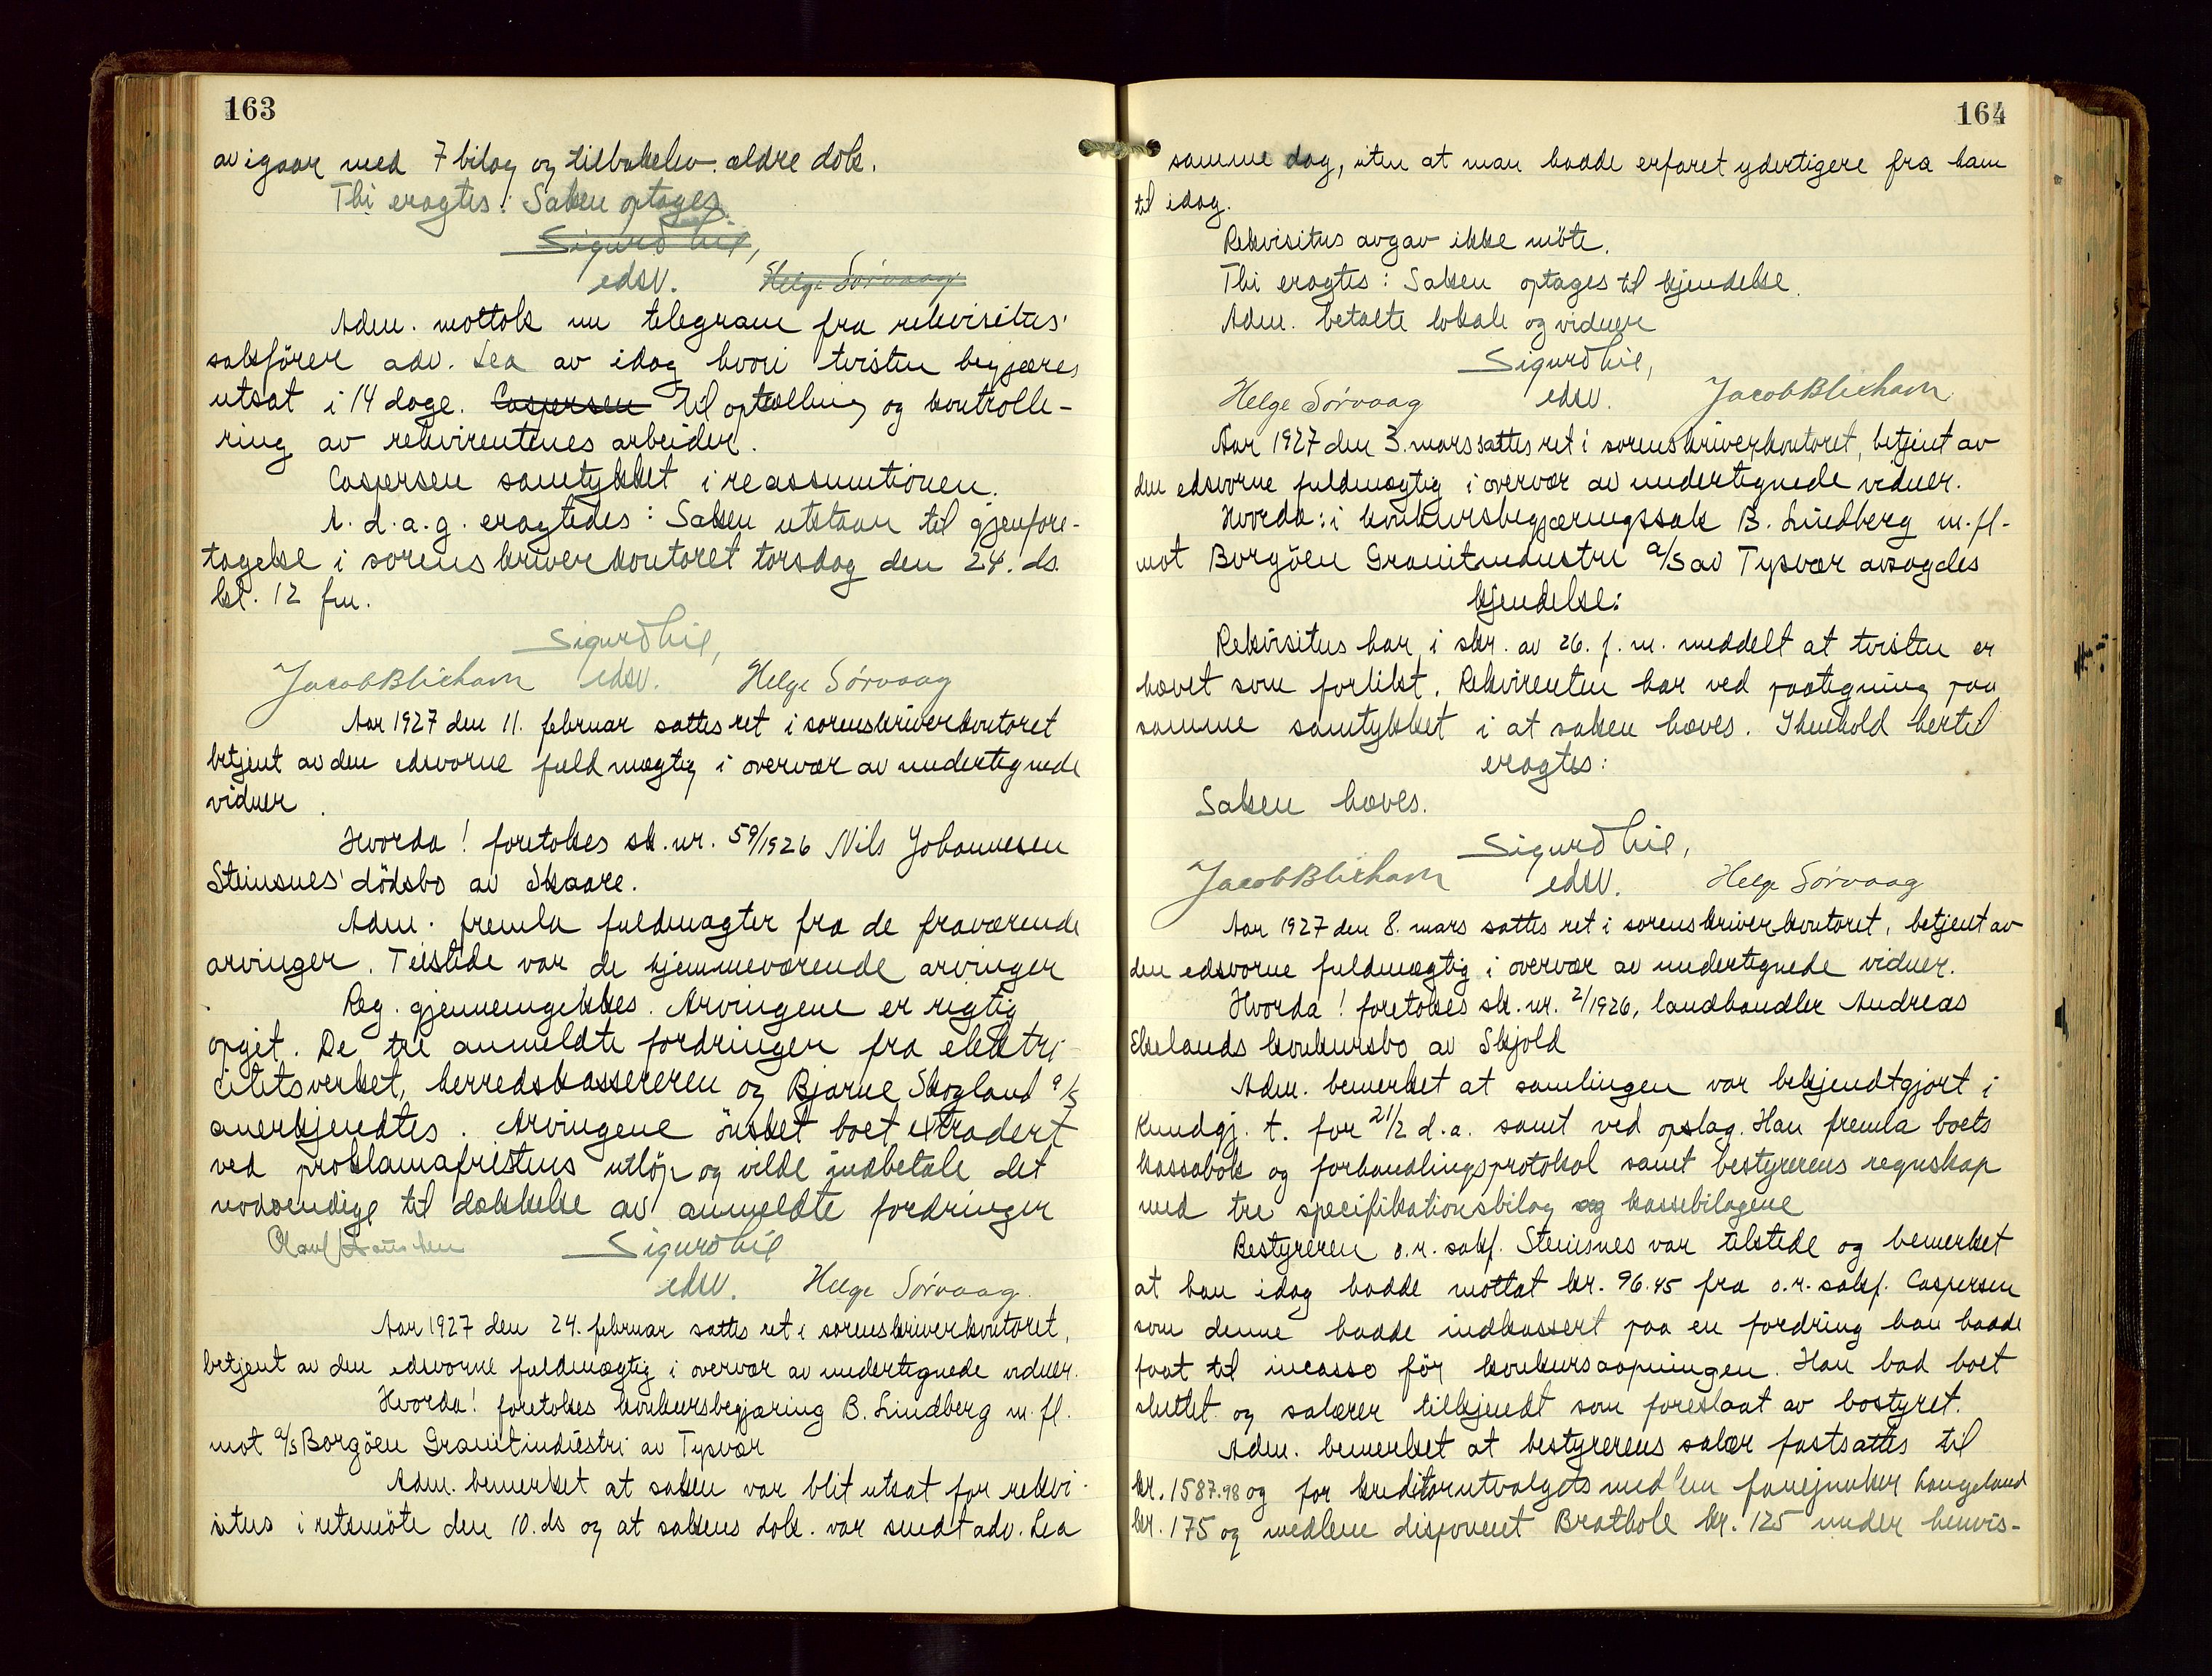 163
av igaar med 7 bilag og tilbakelev. ældre dok.
Thi eragtes: Saken optages
Sigurd Lie,
edsv. Helge Sørvaag
Adm. mottok nu telegram fra rekvisitus'
sakfører adv. Lea av idag hvori tvisten begjæres
utsat i 14 dage. Caspersen til optælling og kontrolle-
ring av rekvirentenes arbeider.
Caspersen samtykket i reassumtionen.
A. d. a. g. eragtedes: Saken utstaar til gjenfore-
tagelse i sorenskriverkontoret torsdag den 24. ds.
kl. 12 fm.
Sigurd Lie,
Jacob Blixhavn edsv. Helge Sørvaag
Aar 1927 den 11. februar sattes ret i sorenskriverkontoret
betjent av den edsvorne fuldmægtig i overvær av undertegnede
vidner.
Hvorda! foretokes sk. nr. 59/1926 Nils Johannesen
Steinsnes' dödsbo av Skaare.
Adm. fremla fuldmagter fra de fraværende
arvinger. Tilstede var de hjemmeværende arvinger
Reg. gjennemgikkes. Arvingene er rigtig
opgit. De tre anmeldte fordringer fra elektri-
citetsverket, herredskassereren og Bjarne Skogland a/s
anerkjendtes. Arvingene önsket boet extradert
ved proklamafristens utlöp og vilde indbetale det
nodvendige til dækkelse av anmeldte fordringer
Olauf Sigurd Lie
edsv. Helge Sørvaag.
Aar 1927 den 24. februar sattes ret i sorenskriverkontoret,
betjent av den edsvorne fuldmægtig i overvær av undertegnede vidner.
Hvorda! foretokes konkursbegjæring B. Lindberg m. fl.
mot a/s Borgöen Granitindustri av Tysvær
Adm. bemerket at saken var blit utsat for rekvi-
situs i retsmöte den 10. ds og at sakens dok. var sendt adv. Lea
164
samme dag, uten at man hadde erfaret ydertigere fra ham
til idag.
Rekvisitus avgav ikke möte.
Thi eragtes: Saken optages til kjendelse.
Adm. betalte lokale og vidner
Sigurd Lie,
Helge Sørvaag edsv. Jacob Blixhavn
Aar 1927 den 3. mars sattes ret i sorenskriverkontoret, betjent av
den edsvorne fuldmægtig i overvær av undertegnede vidner.
Hvorda: i konkursbegjæringssak B. Lindberg m. fl-
mot Borgöen Granitindustri a/s av Tysvær avsagdes
kjendelse:
Rekvisitus har i skr. av 26. f. m. meddelt at tvisten er
hævet som forlikt. Rekvirenten har ved paategning paa
samme samtykket i at saken hæves. I henhold hertil
eragtes:
Saken hæves.
Sigurd Lie,
Jacob Blixhavn edsv. Helge Sørvaag
Aar 1927 den 8. mars sattes ret i sorenskriverkontoret, betjent av
den edsvorne fuldmægtig i overvær av undertegnede vidner.
Hvorda! foretokes sk. nr. 2/1926, landhandler Andreas
Ekelands konkursbo av Skjold
Adm. bemerket at samlingen var bekjendtgjort i
Kundgj. t. for 21/2 d. a. samt ved opslag. Han fremla boets
kassabok og forhandlingsprotokol samt bestyrerens regnskap
med tre specifikationsbilag og kassebilagene
Bestyreren o. r. sakf. Steinsnes var tilstede og bemerket
at han idag hadde mottat kr. 96.45 fra o. r. sakf. Caspersen
som denne hadde indkassert paa en fordring han hadde
faat til incasso för konkursaapningen. Han bad boet
sluttet og salærer tilkjendt som foreslaat av bostyret.
Adm. bemerket at bestyrerens salær fastsattes til
kr. 1587.98 og for kreditorutvalgets medlem fanejunker Langeland
kr. 175 og medlem disponent Brathole kr. 125 under henvis-